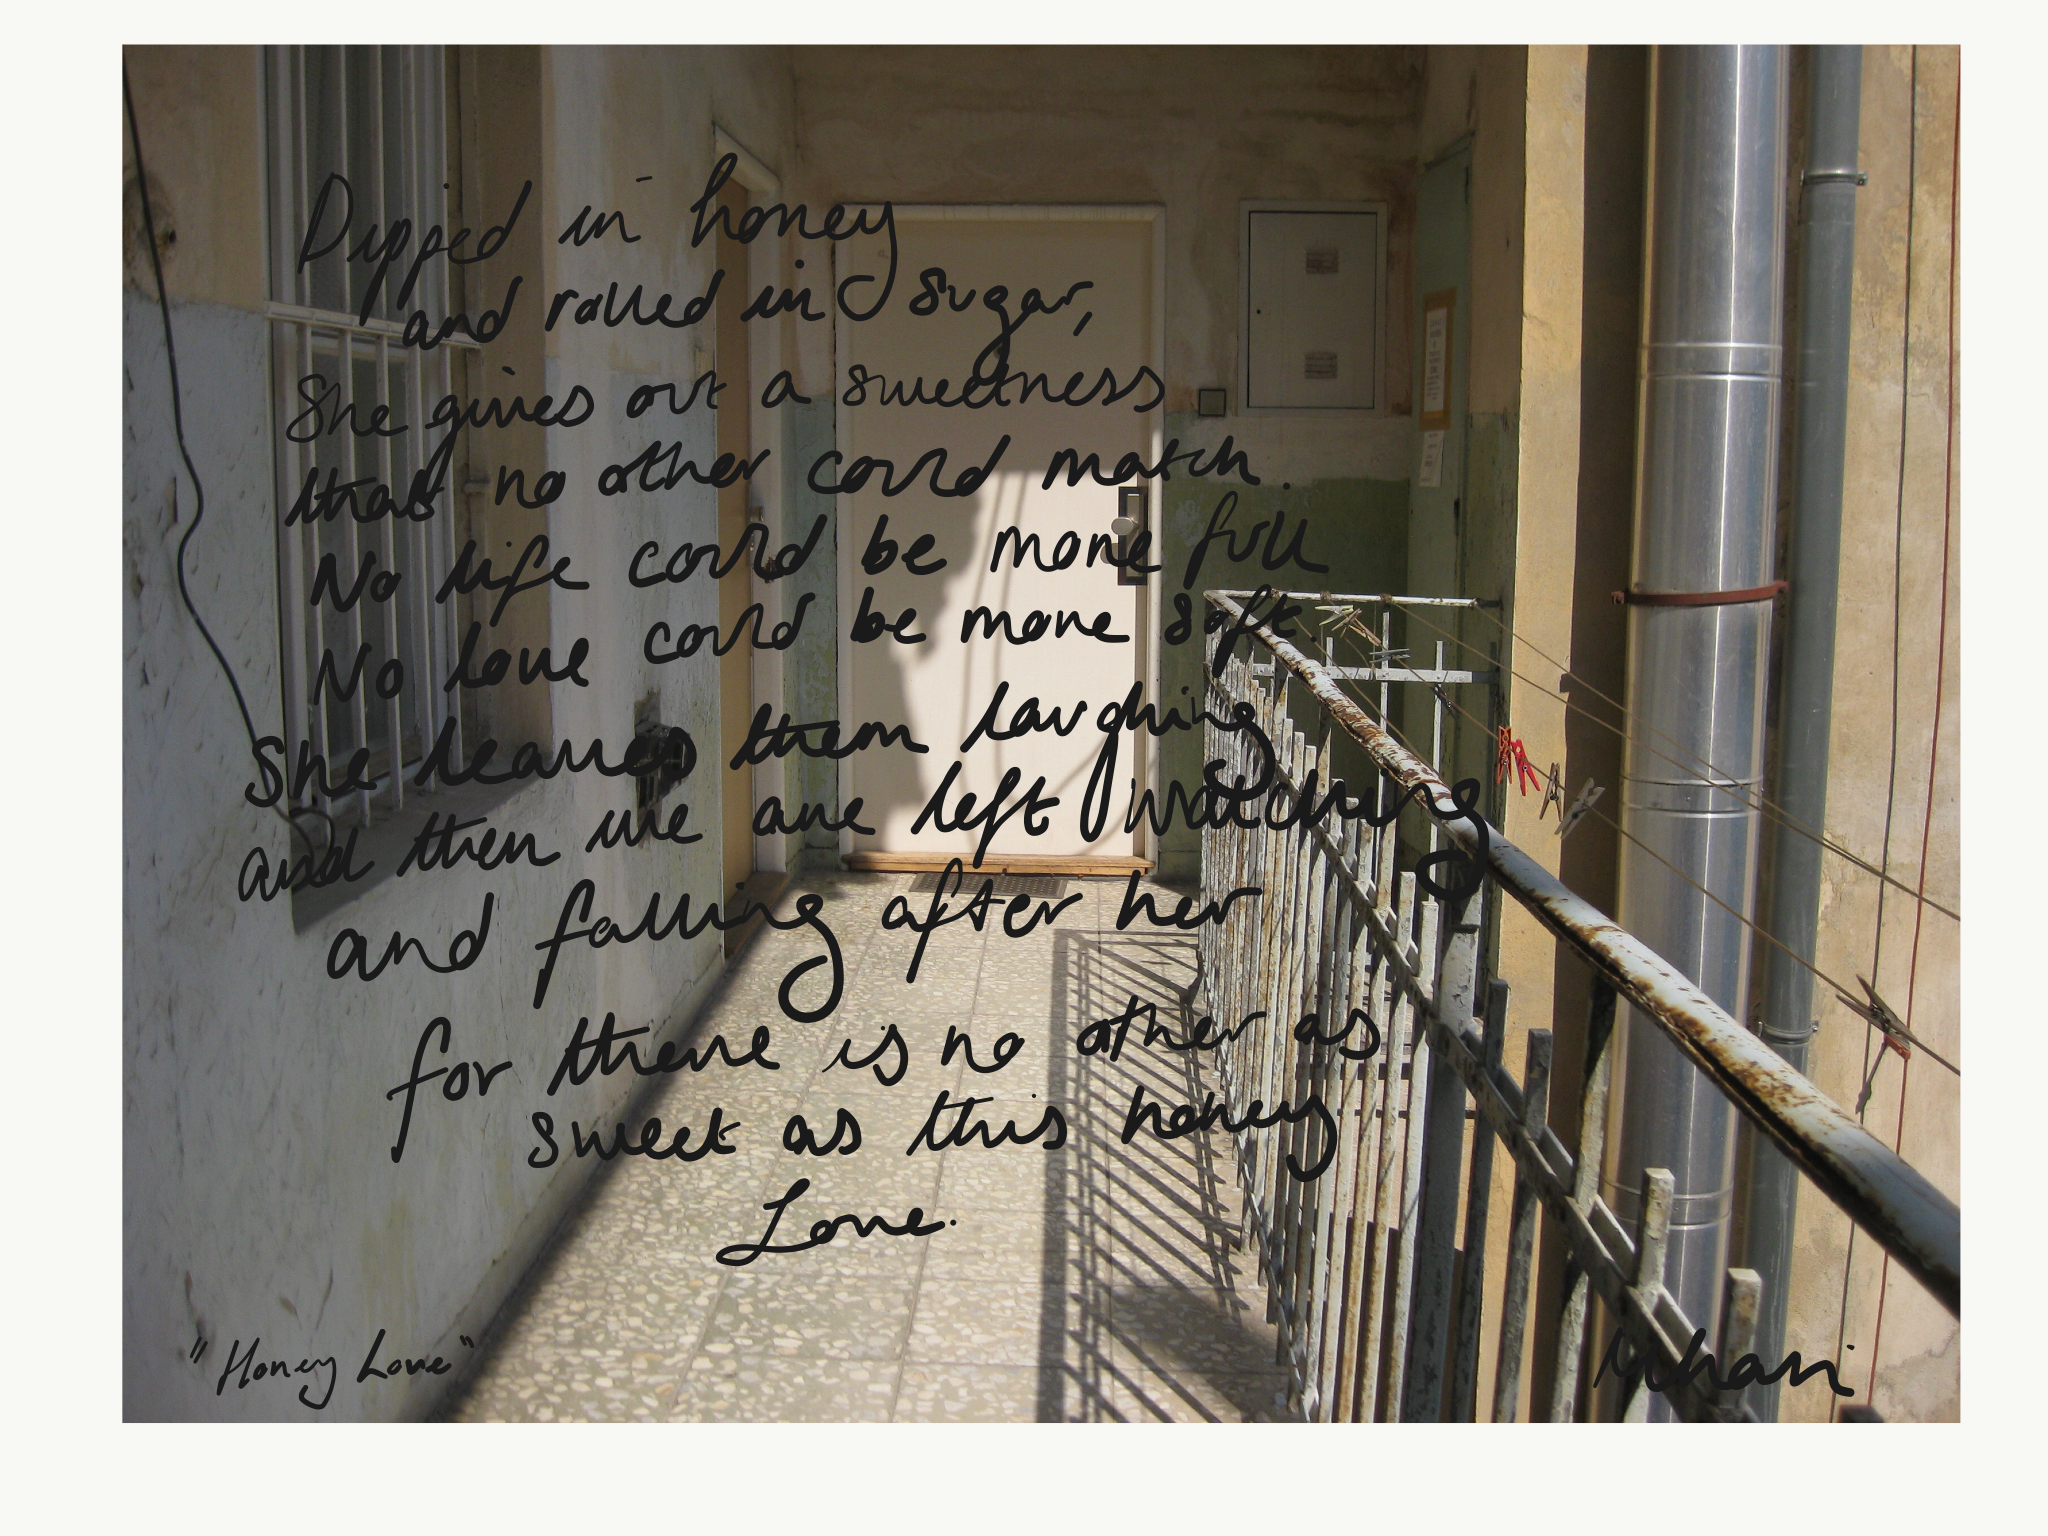 Dipped in honey
and rolled in sugar,
She gives out a sweetness
that no other could match.
No life could be more full
No love could be more soft.
She leaves them laughing
and then we are left watching
and falling after her
for there is no other as
sweet as this honey
Love.
"Honey Love"